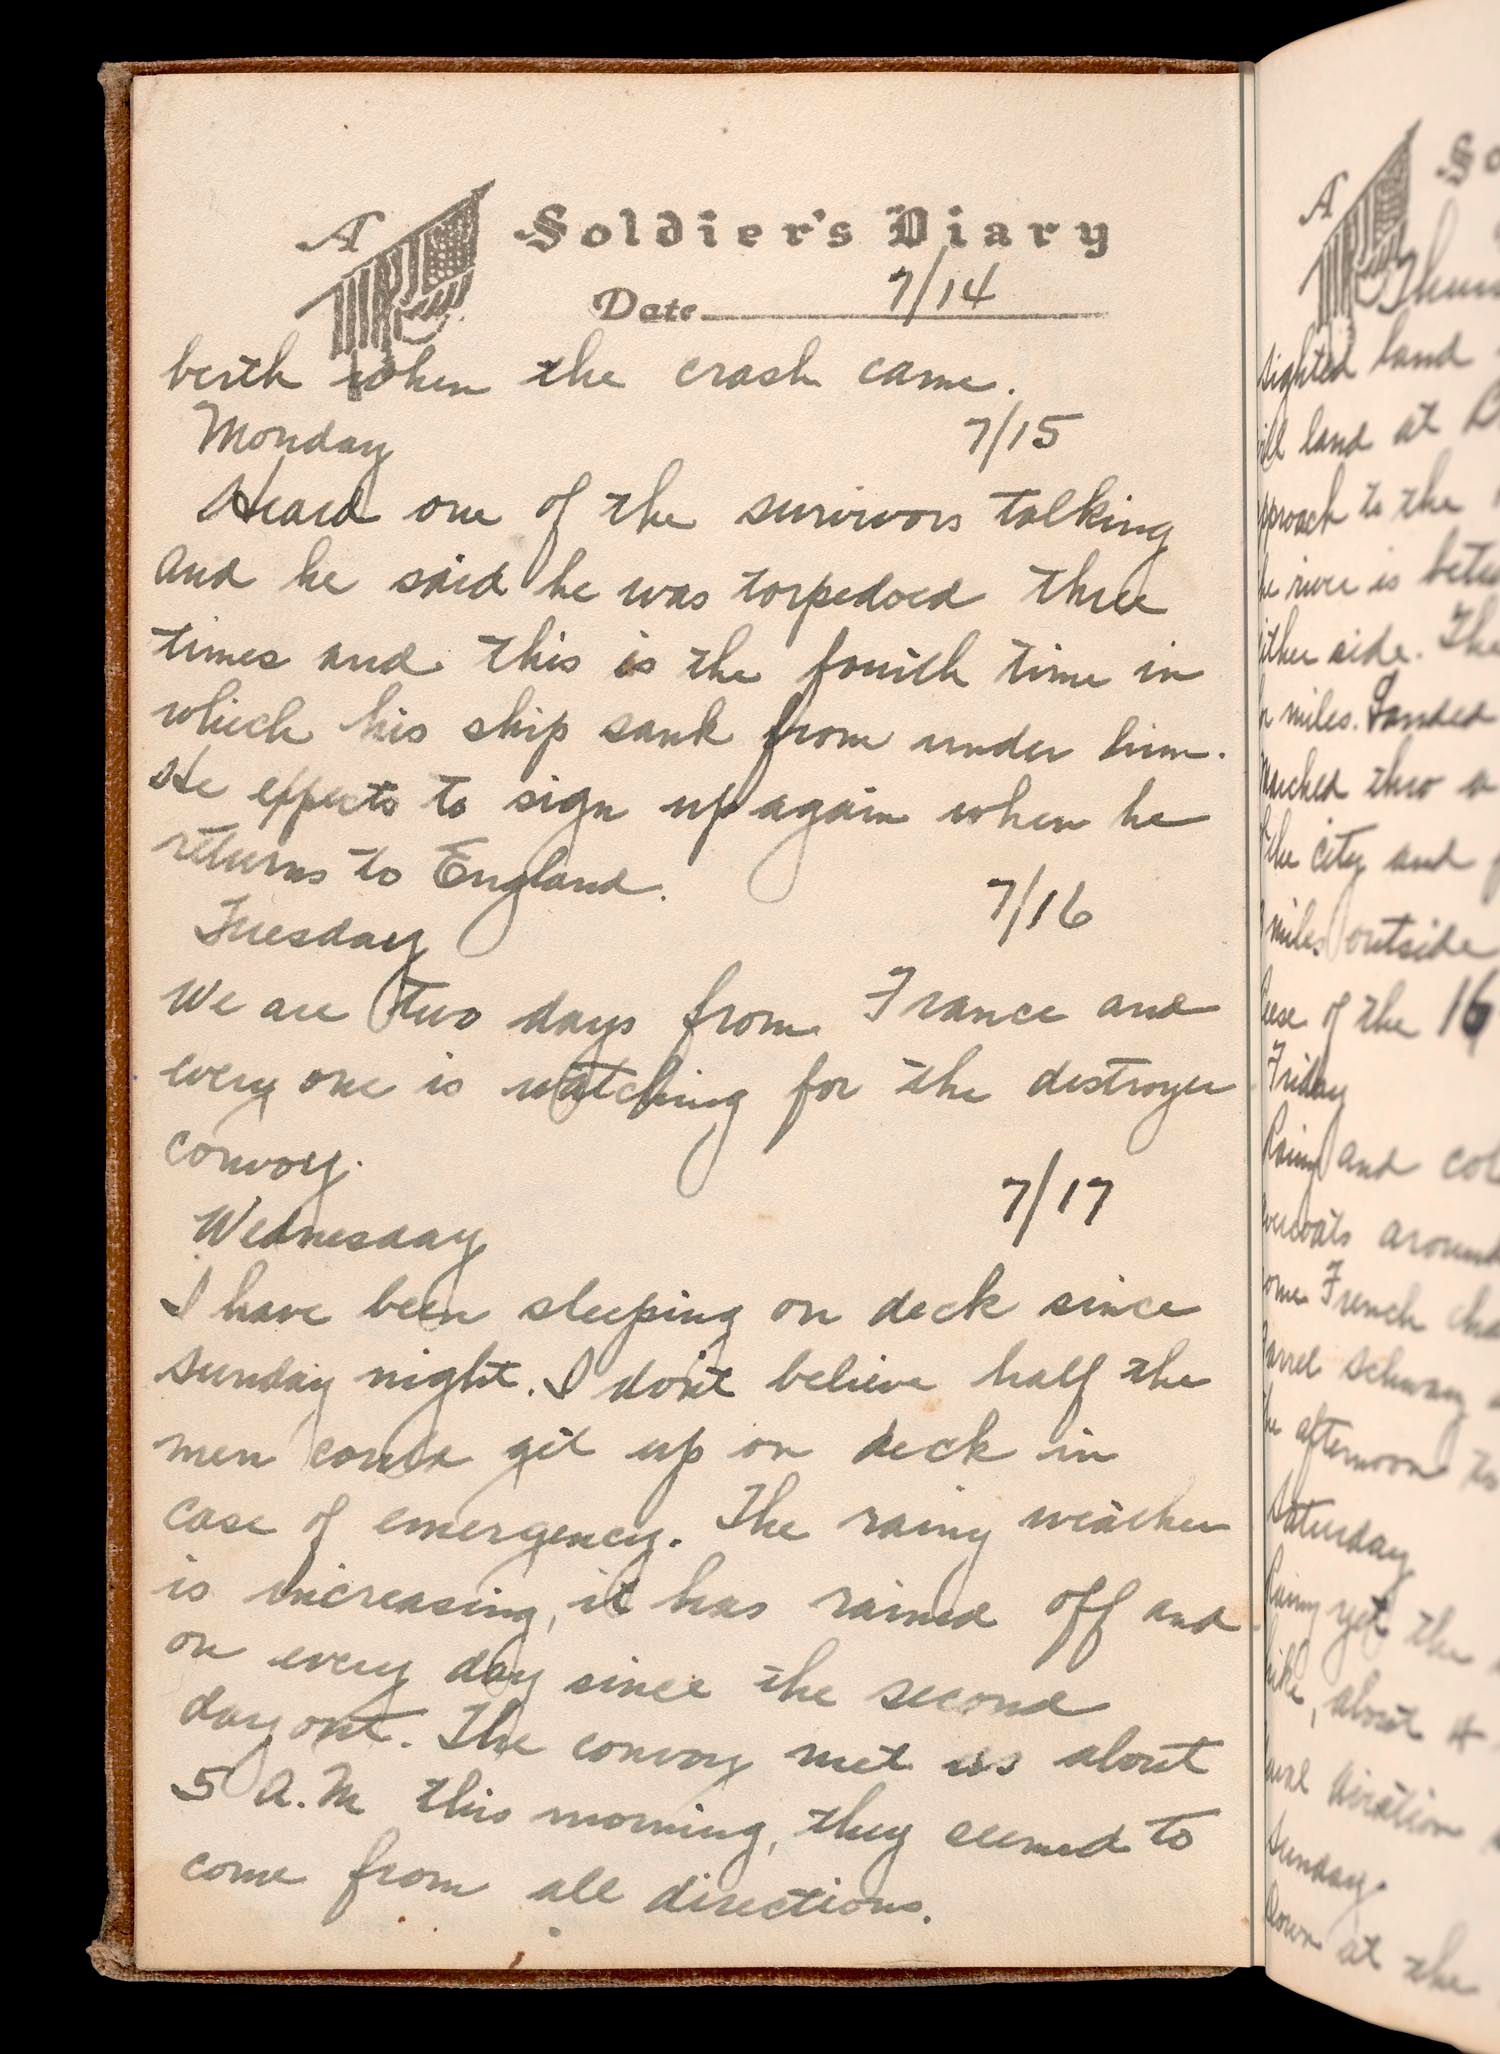 A Soldier's Diary
Date 7/14
berth when the crash came.
Monday 7/15
Heard one of the survivors talking
and he said he was torpedoed three
times and this is the fourth time in
which his ship sank from under him.
He effects to sign up again when he
returns to England.
Tuesday 7/16
We are two days from France and
every one is watching for the destroyer
convoy.
Wednesday 7/17
I have been sleeping on deck since
sunday night. I don't believe half the
men could get up on deck in
case of emergency. The rainy weather
is increasing, it has rained off and
on every day since the second
day out. The convoy met us about
5 A.M this morning, they seemed to
come from all directions.
A
sighted land
land at
to the
river is
side. The
miles. Landed
thro
the city and
miles outside
of the 16
Friday
Rainy and
around
French
the afternoon
Saturday
Rainy yet the
about
Sunday
Down at the